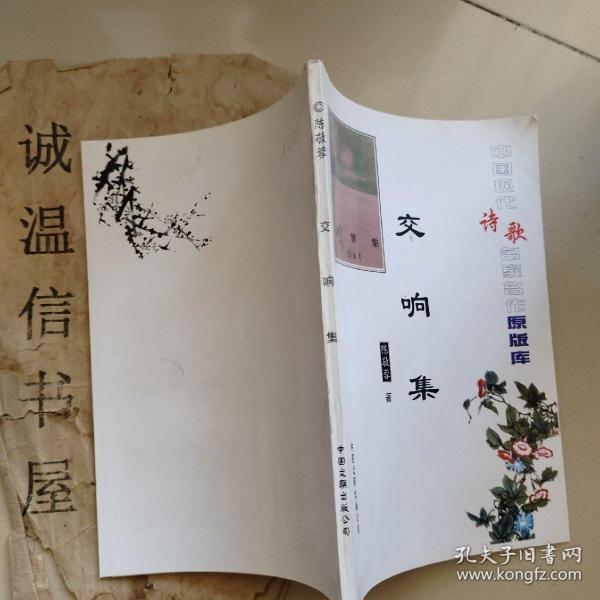 诚温信书屋
◎陈敬蓉
交响集
中国文联出版公司
中国现代
诗歌
名家名作原版库
交响集
陈敬蓉 著
中国文联出版公司
孔夫子旧书网
www.kongfz.com